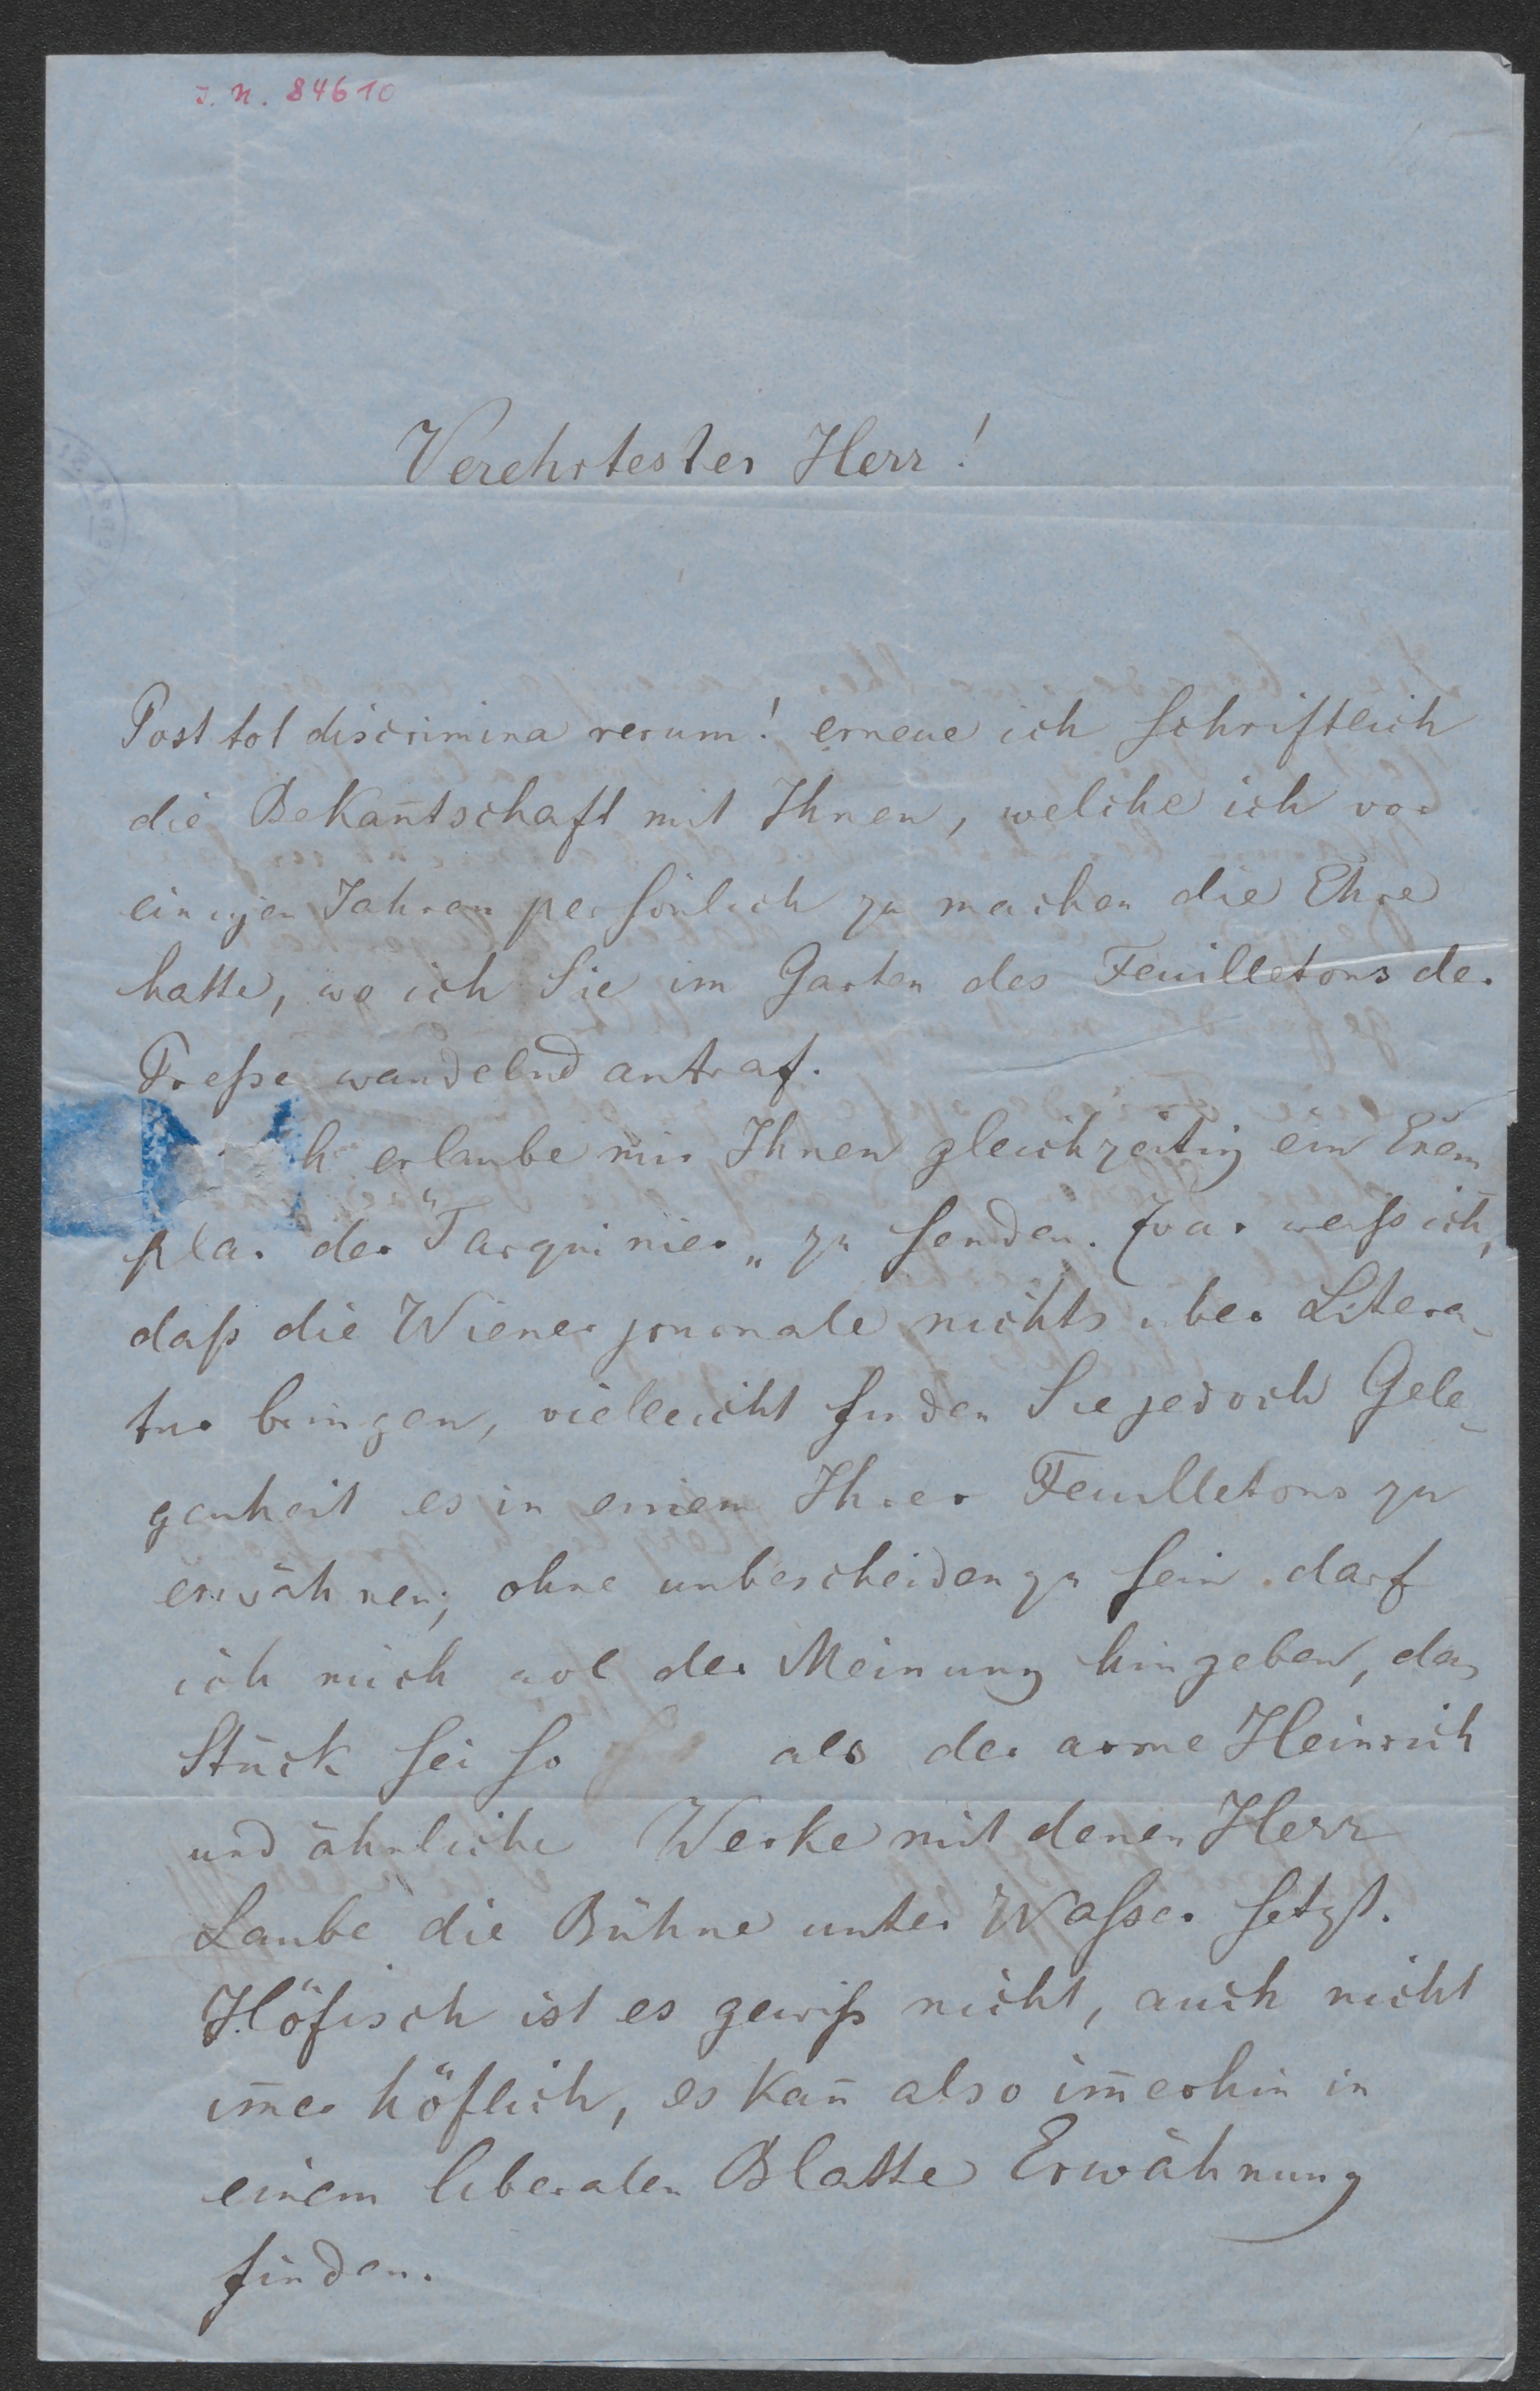 J. N. 84610
Verehrtester Herr!
Post tot discrimina rerum! erneue ich schriftlich
die Bekan̄tschaft mit Ihnen, welche ich vor
einigen Jahren persönlich zu machen die Ehre
hatte, wo ich Sie im Garten des Feuilletons der
Preße wandelnd antraf.
h erlaube mir Ihnen gleichzeitig ein Exem
plar der "Tarquinier„ zu senden. Zwar weiß ich,
daß die Wiener journale nichts über Litera-
tur bringen, vielleicht finden Sie jedoch Gele-
genheit es in einem Ihrer Feuilletons zu
erwähnen; ohne unbescheiden zu sein darf
ich mich wol der Meinung hingeben, das
Stück sei so als der arme Heinrich
und ähnliche Werke mit denen Herr
Laube die Bühne unter Waßer setzt.
Höfisch ist es gewiß nicht, auch nicht
im̄er höflich, es kan̄ also im̄erhin in
einem liberalen Blatte Erwähnung
finden.